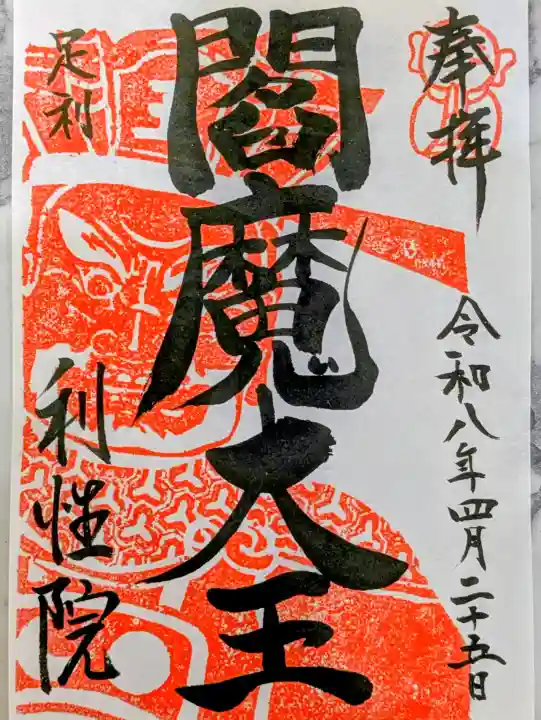 奉拝
令和八年四月二十五日
閻魔大王
足利
利性院